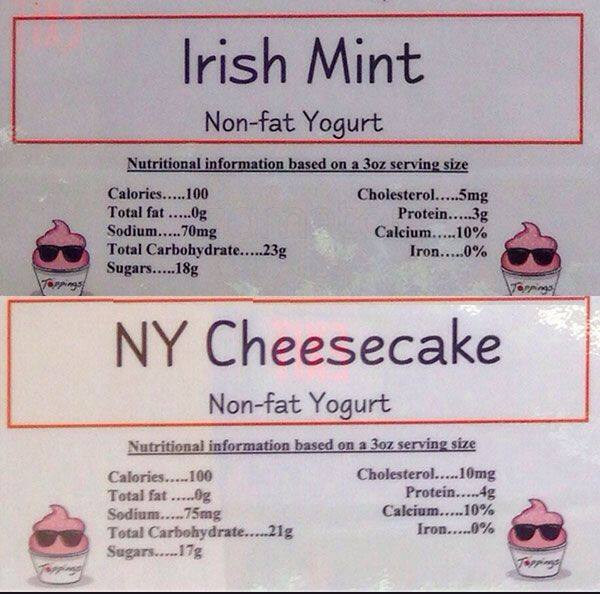 Irish Mint
Non-fat Yogurt
Nutritional information based on a 3oz serving size
Calories.....100
Total fat .....0g
Sodium.....70mg
Total Carbohydrate.....23g
Sugars.....18g
Cholesterol.....5mg
Protein.....3g
Calcium.....10%
Iron.....0%
Toppings
Toppings
NY Cheesecake
Non-fat Yogurt
Nutritional information based on a 3oz serving size
Calories.....100
Total fat .....0g
Sodium.....75mg
Total Carbohydrate.....21g
Sugars.....17g
Cholesterol.....10mg
Protein.....4g
Calcium.....10%
Iron.....0%
Toppings
Toppings